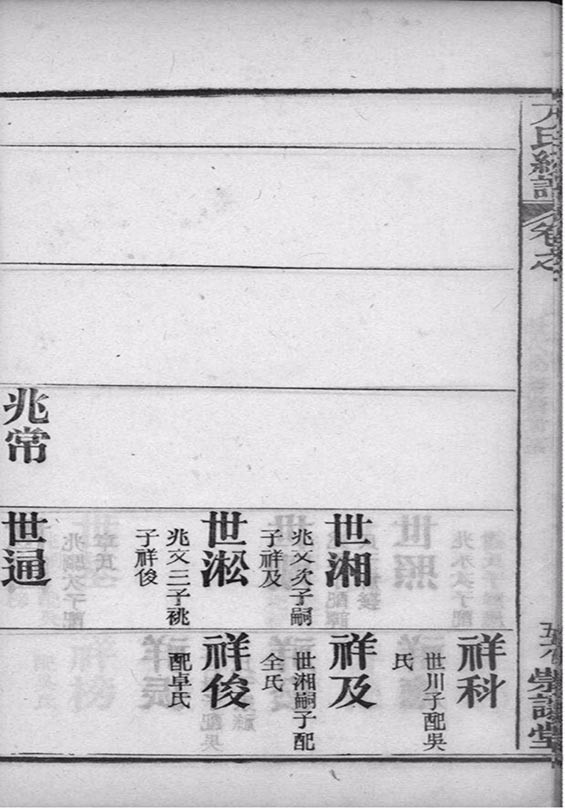 氏
譜
卷之
崇
堂
兆常
世湘
兆文次子嗣
子祥及
世淞
兆文三子祧
子祥俊
世逼
祥科
世川子配吳
氏
祥及
世湘嗣子配
全氏
祥俊
配卓氏